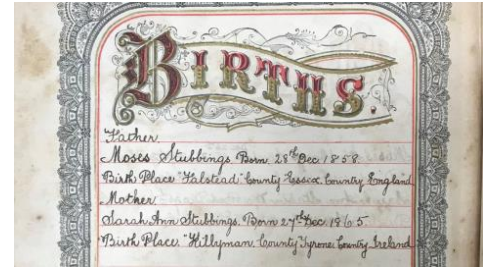 BIRTHS.
Father
Moses Stubbings Born 28th Dec 1858
Birth Place "Halstead" County Essex, Country England
Mother
Sarah Ann Stubbings. Born 27th Dec 1865.
Birth Place. "Hillyman, County Tyrone, Country Ireland